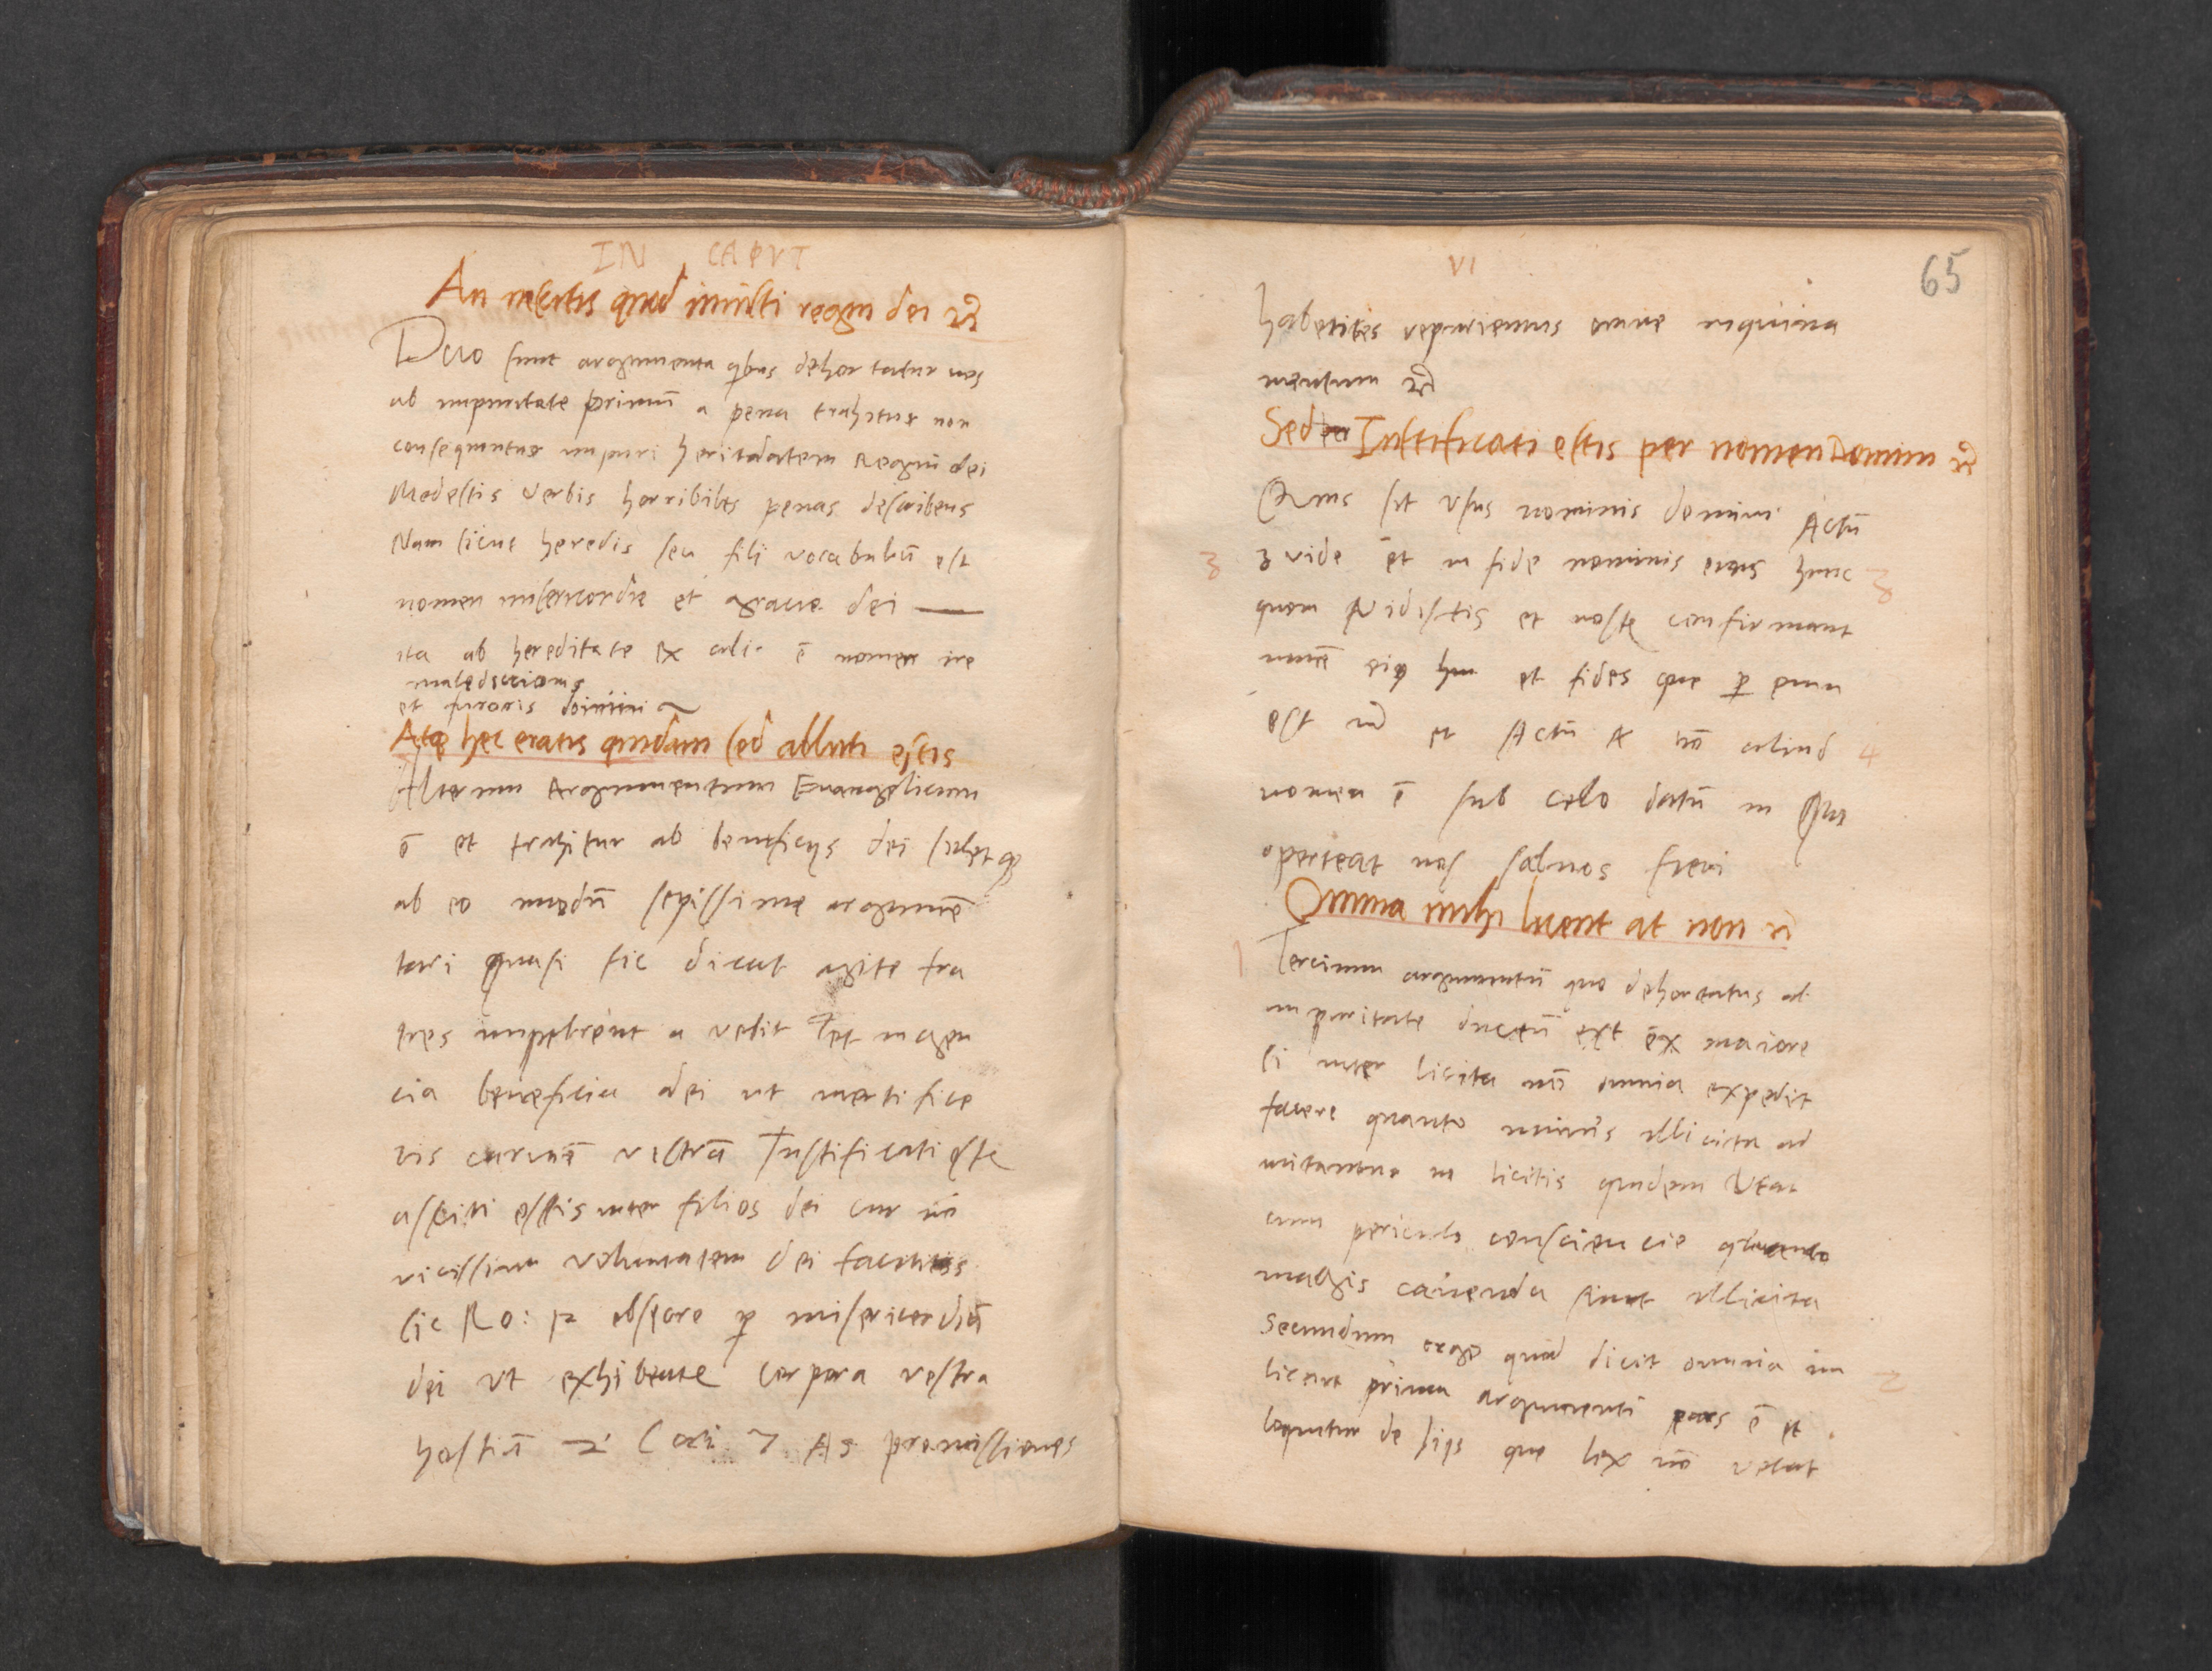 IN CAPVT
An nescitis quod iniusti regnu dei
Duo sunt argumenta qbus dehortatur nos
ab impuritate primū a pena trahitur non
consequuntur impuri heriditatem Regni dei
Modestis verbis horribiles penas describens
Nam sicut heredis seu fili vocabulū est
nomen misericordie et gracie dei —
ita ab hereditate ex ē nomen ire
maledictionis
et furoris domini
Atq hec eratis quidam sed abluti estis
Alterum Argumentum Euangelicum
ē et trahitur ab beneficijs dei solet q
ab eo modū sepissime argumē
tari quasi sic dicat agite fra
tres a vobis tot ingen
cia beneficia dei ut mortifice
tis carnē vestrā Iustificati este
asciti estis inter filios dei cur nō
vicissim voluntatem dei facitis
sic Ro: 12 obsecro p misericordiā
dei vt exhibeate corpora vestra
hostiā 2 Cori 7 As promissiones
VI
65
habentes repuriemus omne inquina
mentum
Sed Iustificati estis per nomen Domini
Quis sit vsus nominis domini Actū
3 3 vide et in fide nominis eius hunc 3
quem Vidistis et noste confirmant
nomē eiq hui et fides que p eum
est et Actū 4 nō aliud 4
nomen ē sub celo datū in Quo
operteat nos saluos fieri
Omnia mihi licent at non
1 Tercium argumentū quo dehortatus ab
impuritate ductū est ex maiore
si inter licita nō omnia expedit
facere quanto minus illicita ad
mitantur in licitis quidem
cum periculo consciencie quanto
magis cauenda sunt illicita
Secundum ergo quod dicit omnia im 2
licent prima argumenti pars ē et
loquitur de hijs que lex nō vetat